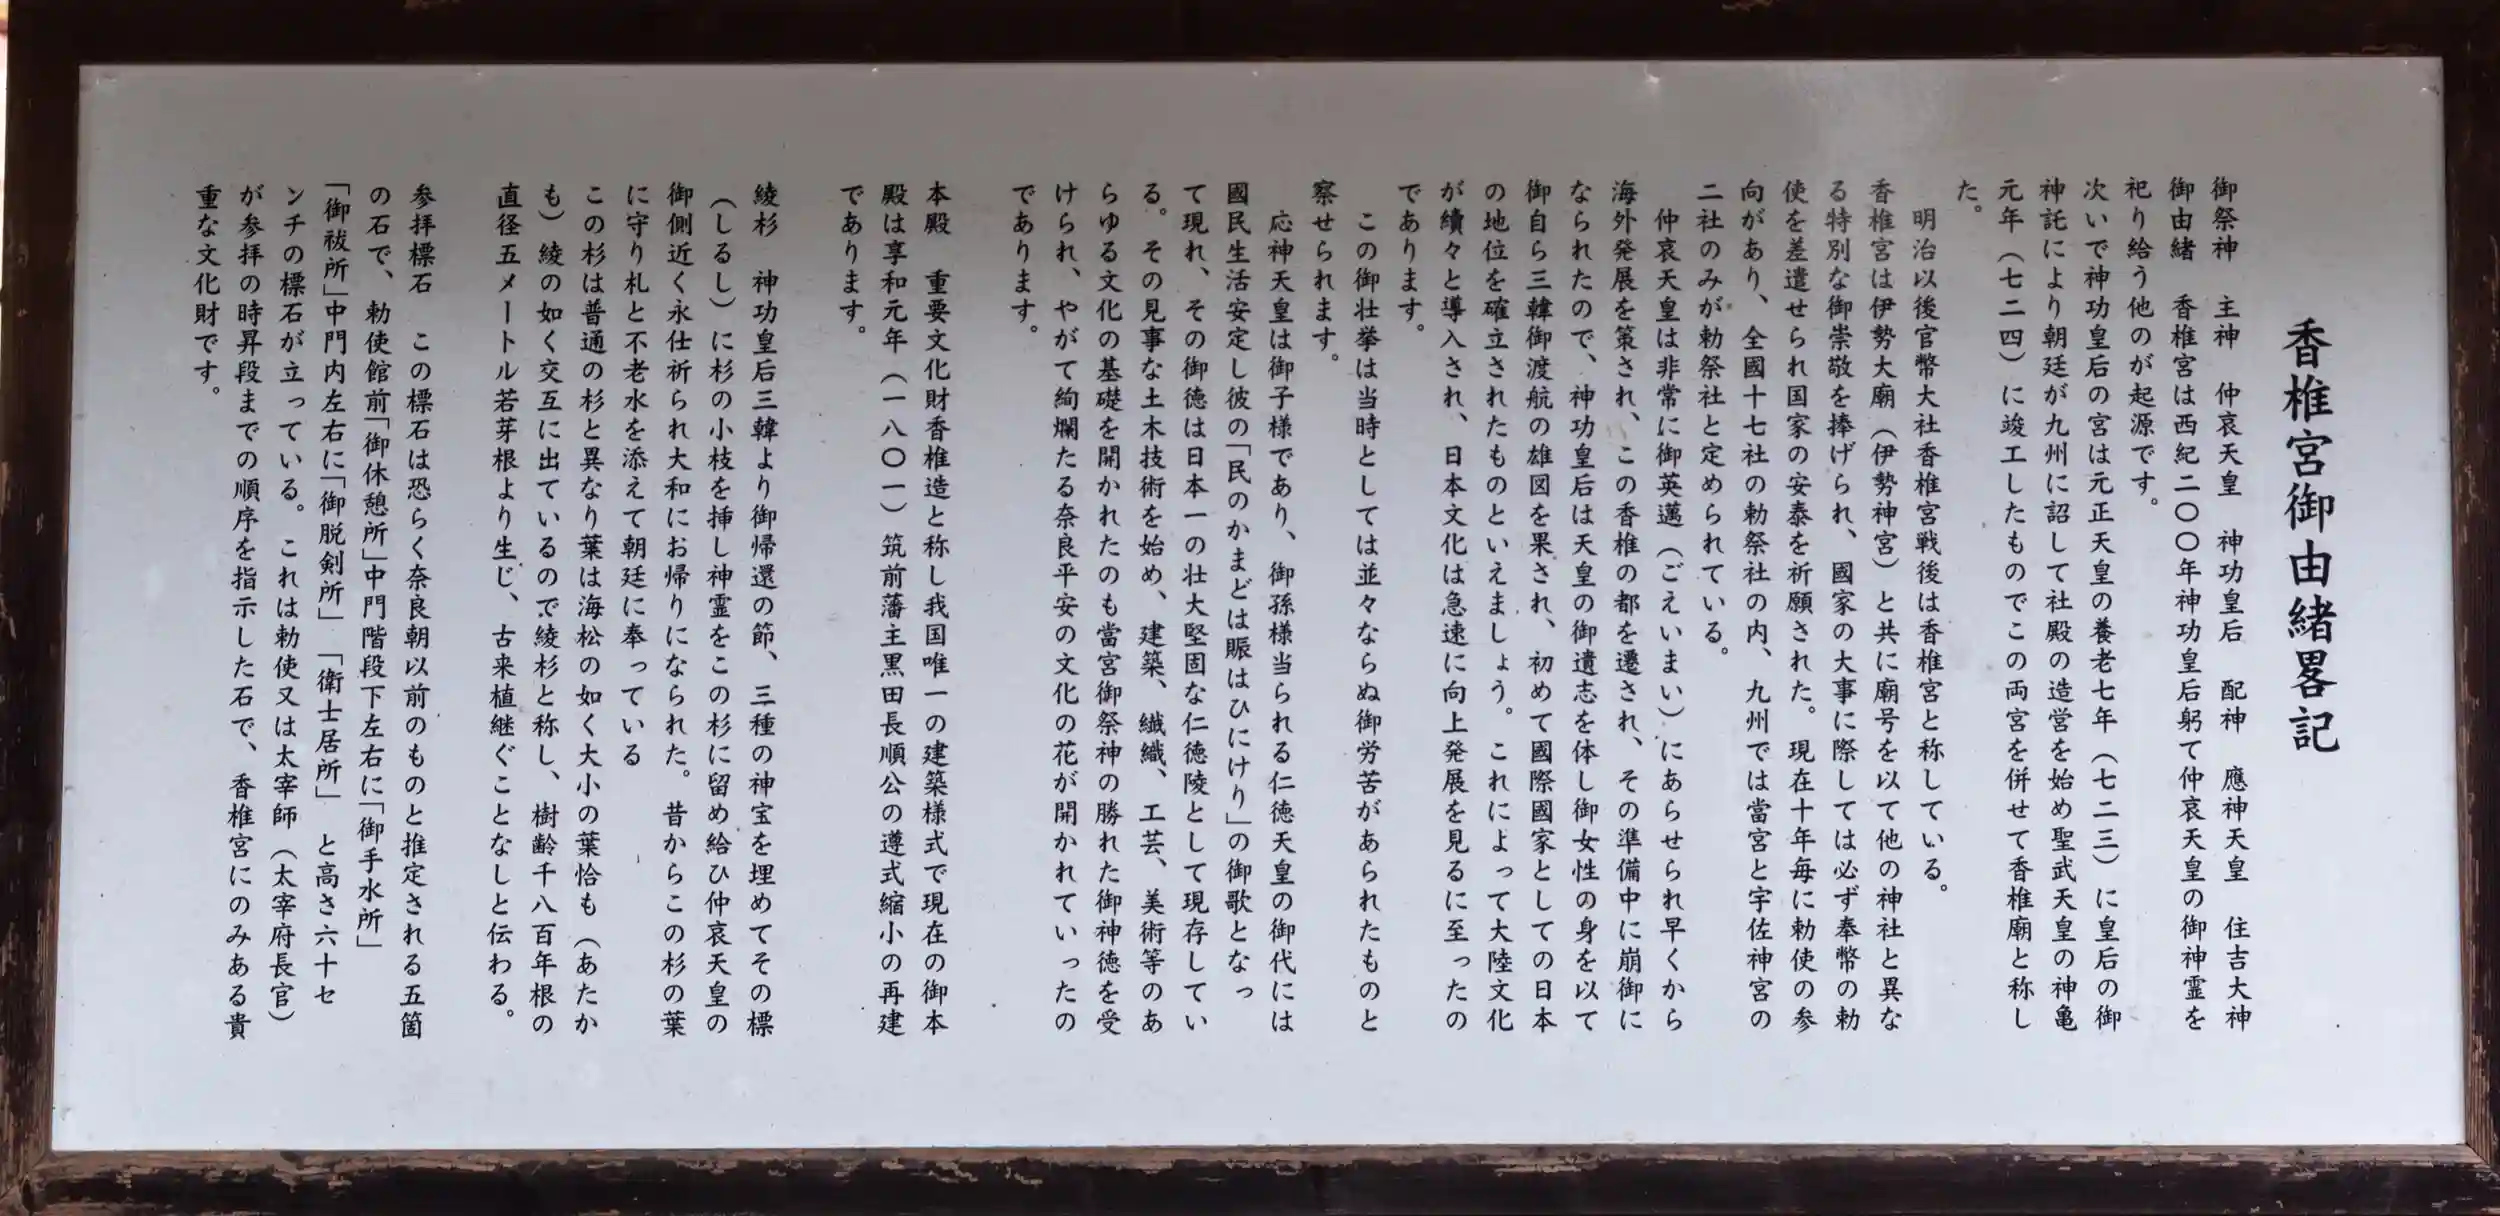 香椎宮御由緒畧記
御祭神　主神　仲哀天皇　神功皇后　配神　應神天皇　住吉大神
御由緒　香椎宮は西紀二〇〇年神功皇后躬て仲哀天皇の御神霊を
祀り給う他のが起源です。
次いで神功皇后の宮は元正天皇の養老七年（七二三）に皇后の御
神託により朝廷が九州に詔して社殿の造営を始め聖武天皇の神亀
元年（七二四）に竣工したものでこの両宮を併せて香椎廟と称し
た。
明治以後官幣大社香椎宮戦後は香椎宮と称している。
香椎宮は伊勢大廟（伊勢神宮）と共に廟号を以て他の神社と異な
る特別な御崇敬を捧げられ、國家の大事に際しては必ず奉幣の勅
使を差遣せられ国家の安泰を祈願された。現在十年毎に勅使の参
向があり、全國十七社の勅祭社の内、九州では當宮と宇佐神宮の
二社のみが勅祭社と定められている。
仲哀天皇は非常に御英邁（ごえいまい）にあらせられ早くから
海外発展を策され、この香椎の都を遷され、その準備中に崩御に
なられたので、神功皇后は天皇の御遺志を体し御女性の身を以て
御自ら三韓御渡航の雄図を果され、初めて國際國家としての日本
の地位を確立されたものといえましょう。これによって大陸文化
が續々と導入され、日本文化は急速に向上発展を見るに至ったの
であります。
この御壮挙は当時としては並々ならぬ御労苦があられたものと
察せられます。
応神天皇は御子様であり、御孫様当られる仁徳天皇の御代には
國民生活安定し彼の「民のかまどは賑はひにけり」の御歌となっ
て現れ、その御徳は日本一の壮大堅固な仁徳陵として現存してい
る。その見事な土木技術を始め、建築、繊織、工芸、美術等のあ
らゆる文化の基礎を開かれたのも當宮御祭神の勝れた御神徳を受
けられ、やがて絢爛たる奈良平安の文化の花が開かれていったの
であります。
本殿　重要文化財香椎造と称し我国唯一の建築様式で現在の御本
殿は享和元年（一八〇一）筑前藩主黒田長順公の遵式縮小の再建
であります。
綾杉　神功皇后三韓より御帰還の節、三種の神宝を埋めてその標
（しるし）に杉の小枝を挿し神霊をこの杉に留め給ひ仲哀天皇の
御側近く永仕祈られ大和にお帰りになられた。昔からこの杉の葉
に守り札と不老水を添えて朝廷に奉っている
この杉は普通の杉と異なり葉は海松の如く大小の葉恰も（あたか
も）綾の如く交互に出ているので綾杉と称し、樹齢千八百年根の
直径五メートル若芽根より生じ、古来植継ぐことなしと伝わる。
参拝標石　この標石は恐らく奈良朝以前のものと推定される五箇
の石で、勅使館前「御休憩所」中門階段下左右に「御手水所」
「御祓所」中門内左右に「御脱剣所」「衛士居所」　と高さ六十セ
ンチの標石が立っている。これは勅使又は太宰師（太宰府長官）
が参拝の時昇段までの順序を指示した石で、香椎宮にのみある貴
重な文化財です。